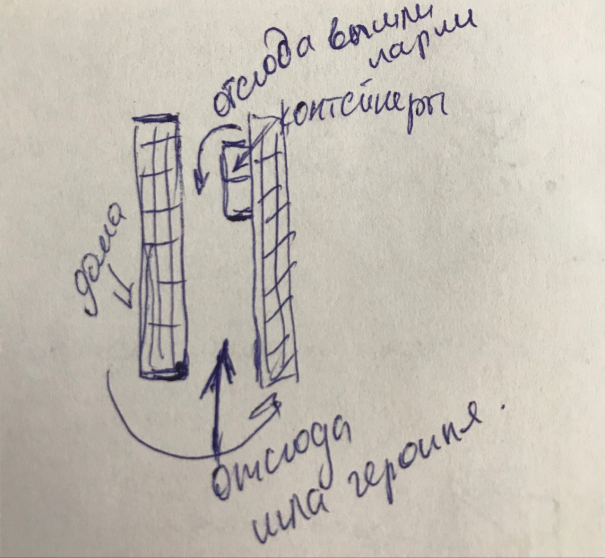 отсюда вышли
парни
контейнеры
дома
отсюда
шла героиня.